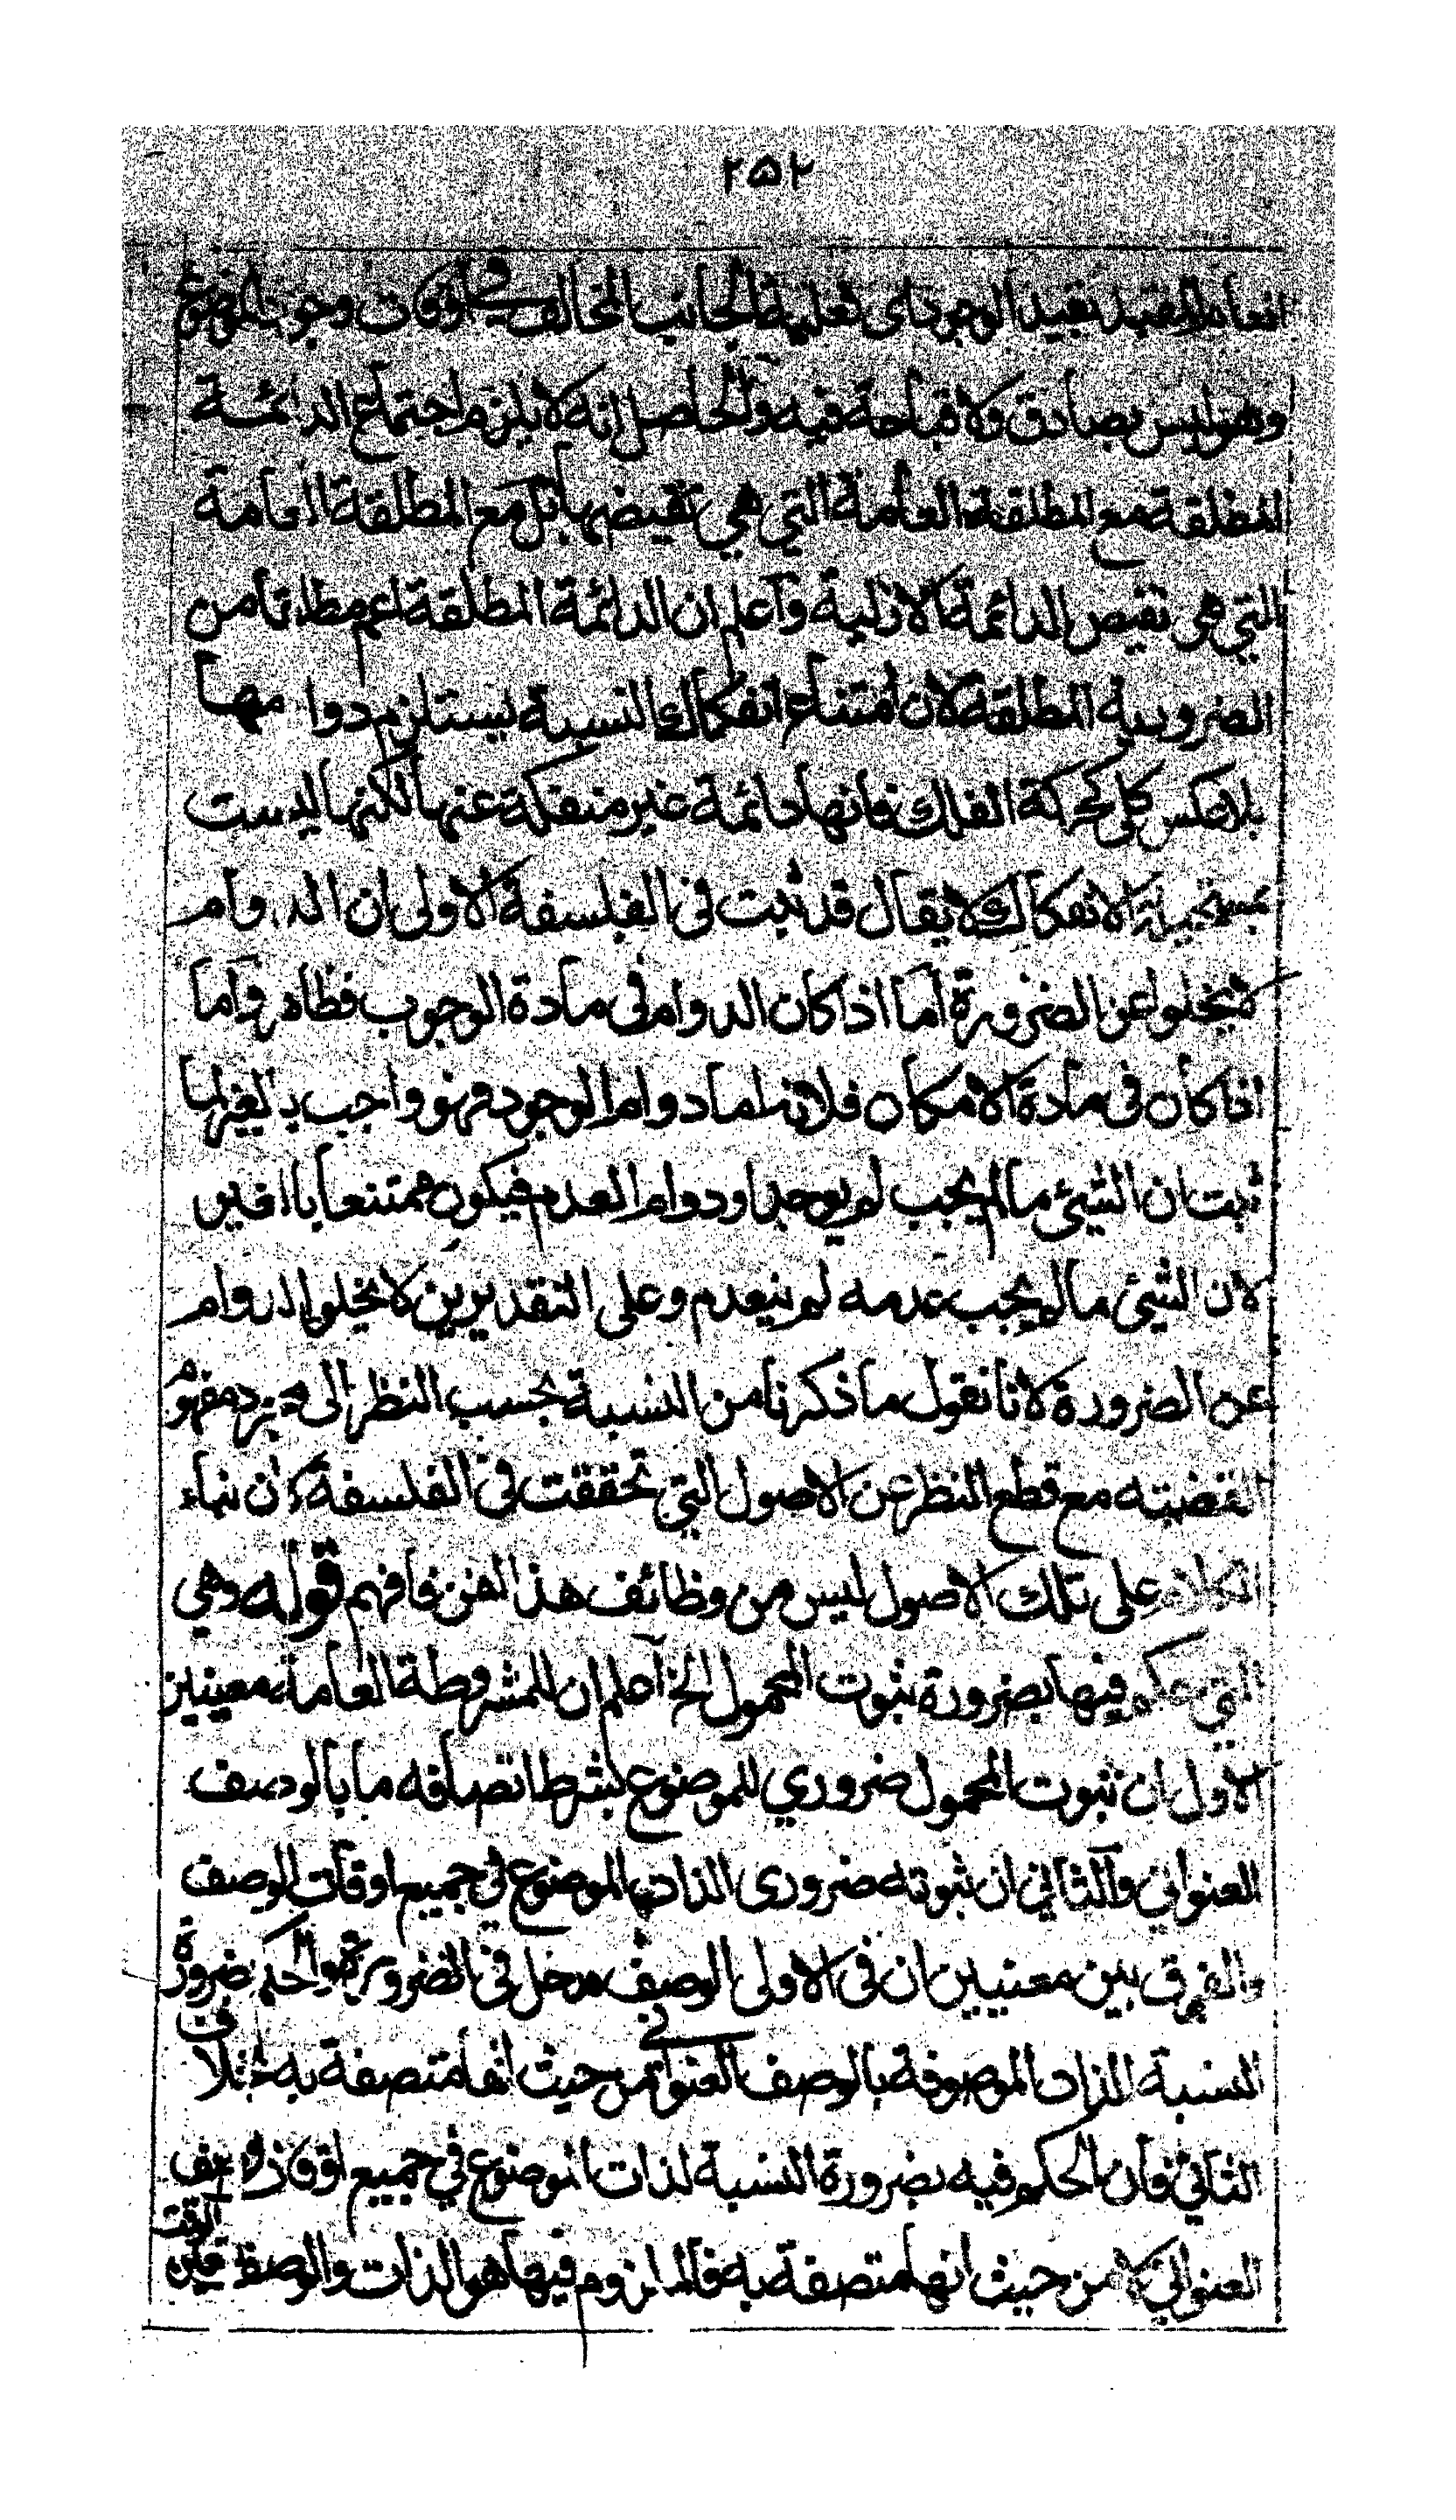 ۲۵۲
العامة المقيد بقيد الوجود اى لفعلية الجانب المخالف في اوقات وجود الموضوع
وهو ليس بصادق ولا قباحة فيه والحاصل انه لا يلزم اجتماع الدائمة
المطلقة مع المطلقة العامة التي هي نقيضها بل مع المطلقة العامة
التي هي نقيض الدائمة الازلية واعلم ان الدائمة المطلقة اعم مطلقا من
الضرورية المطلقة لان امتناع انفكاك النسبة يستلزم دوامها
بلا عكس كلى كحركة الفلك فانها دائمة غير منفكة عنها لكنها ليست
بمستحيلة الانفكاك لا يقال قد ثبت فى الفلسفة الاولى ان الدوام
لا يخلو عن الضرورة اما اذا كان الدوام فى مادة الوجوب فظاهر واما
اذا كان فى مادة الامكان فلانه اما دوام الوجود فهو واجب بالغير لما
ثبت ان الشيئ ما لم يجب لم يوجد او دوام العدم فيكون ممتنعا بالغير
لان الشيئ ما لم يجب عدمه لم ينعدم وعلى التقديرين لا يخلو الدوام
عن الضرورة لانا نقول ما ذكرنا من النسبة بحسب النظر الى مجرد مفهوم
القضيته مع قطع النظر عن الاصول التي تحققت فى الفلسفة لان بناء
الكلام على تلك الاصول ليس من وظائف هذا الفن فافهم قوله وهي
التي حكم فيها بضرورة ثبوت المحمول الخ اعلم ان للمشروطة العامة معنيين
الاول ان ثبوت المحمول ضروري للموضوع بشرط اتصافه ما بالوصف
العنواني والثاني ان ثبوته ضرورى لذات الموضوع في جميع اوقات الوصف
والفرق بين معنيين ان فى الاولى الوصف مدخل فى الضرورة والحكم ضرورة
النسبة للذات الموصوفة بالوصف العنواني من حيث انها متصفة به بخلاف
الثاني فان الحكم فيه بضرورة النسبة لذات الموضوع في جميع اوقات الوصف
العنواني لا من حيث انها متصفة به فالملزوم فيها هو الذات والوصف قيد الوقت